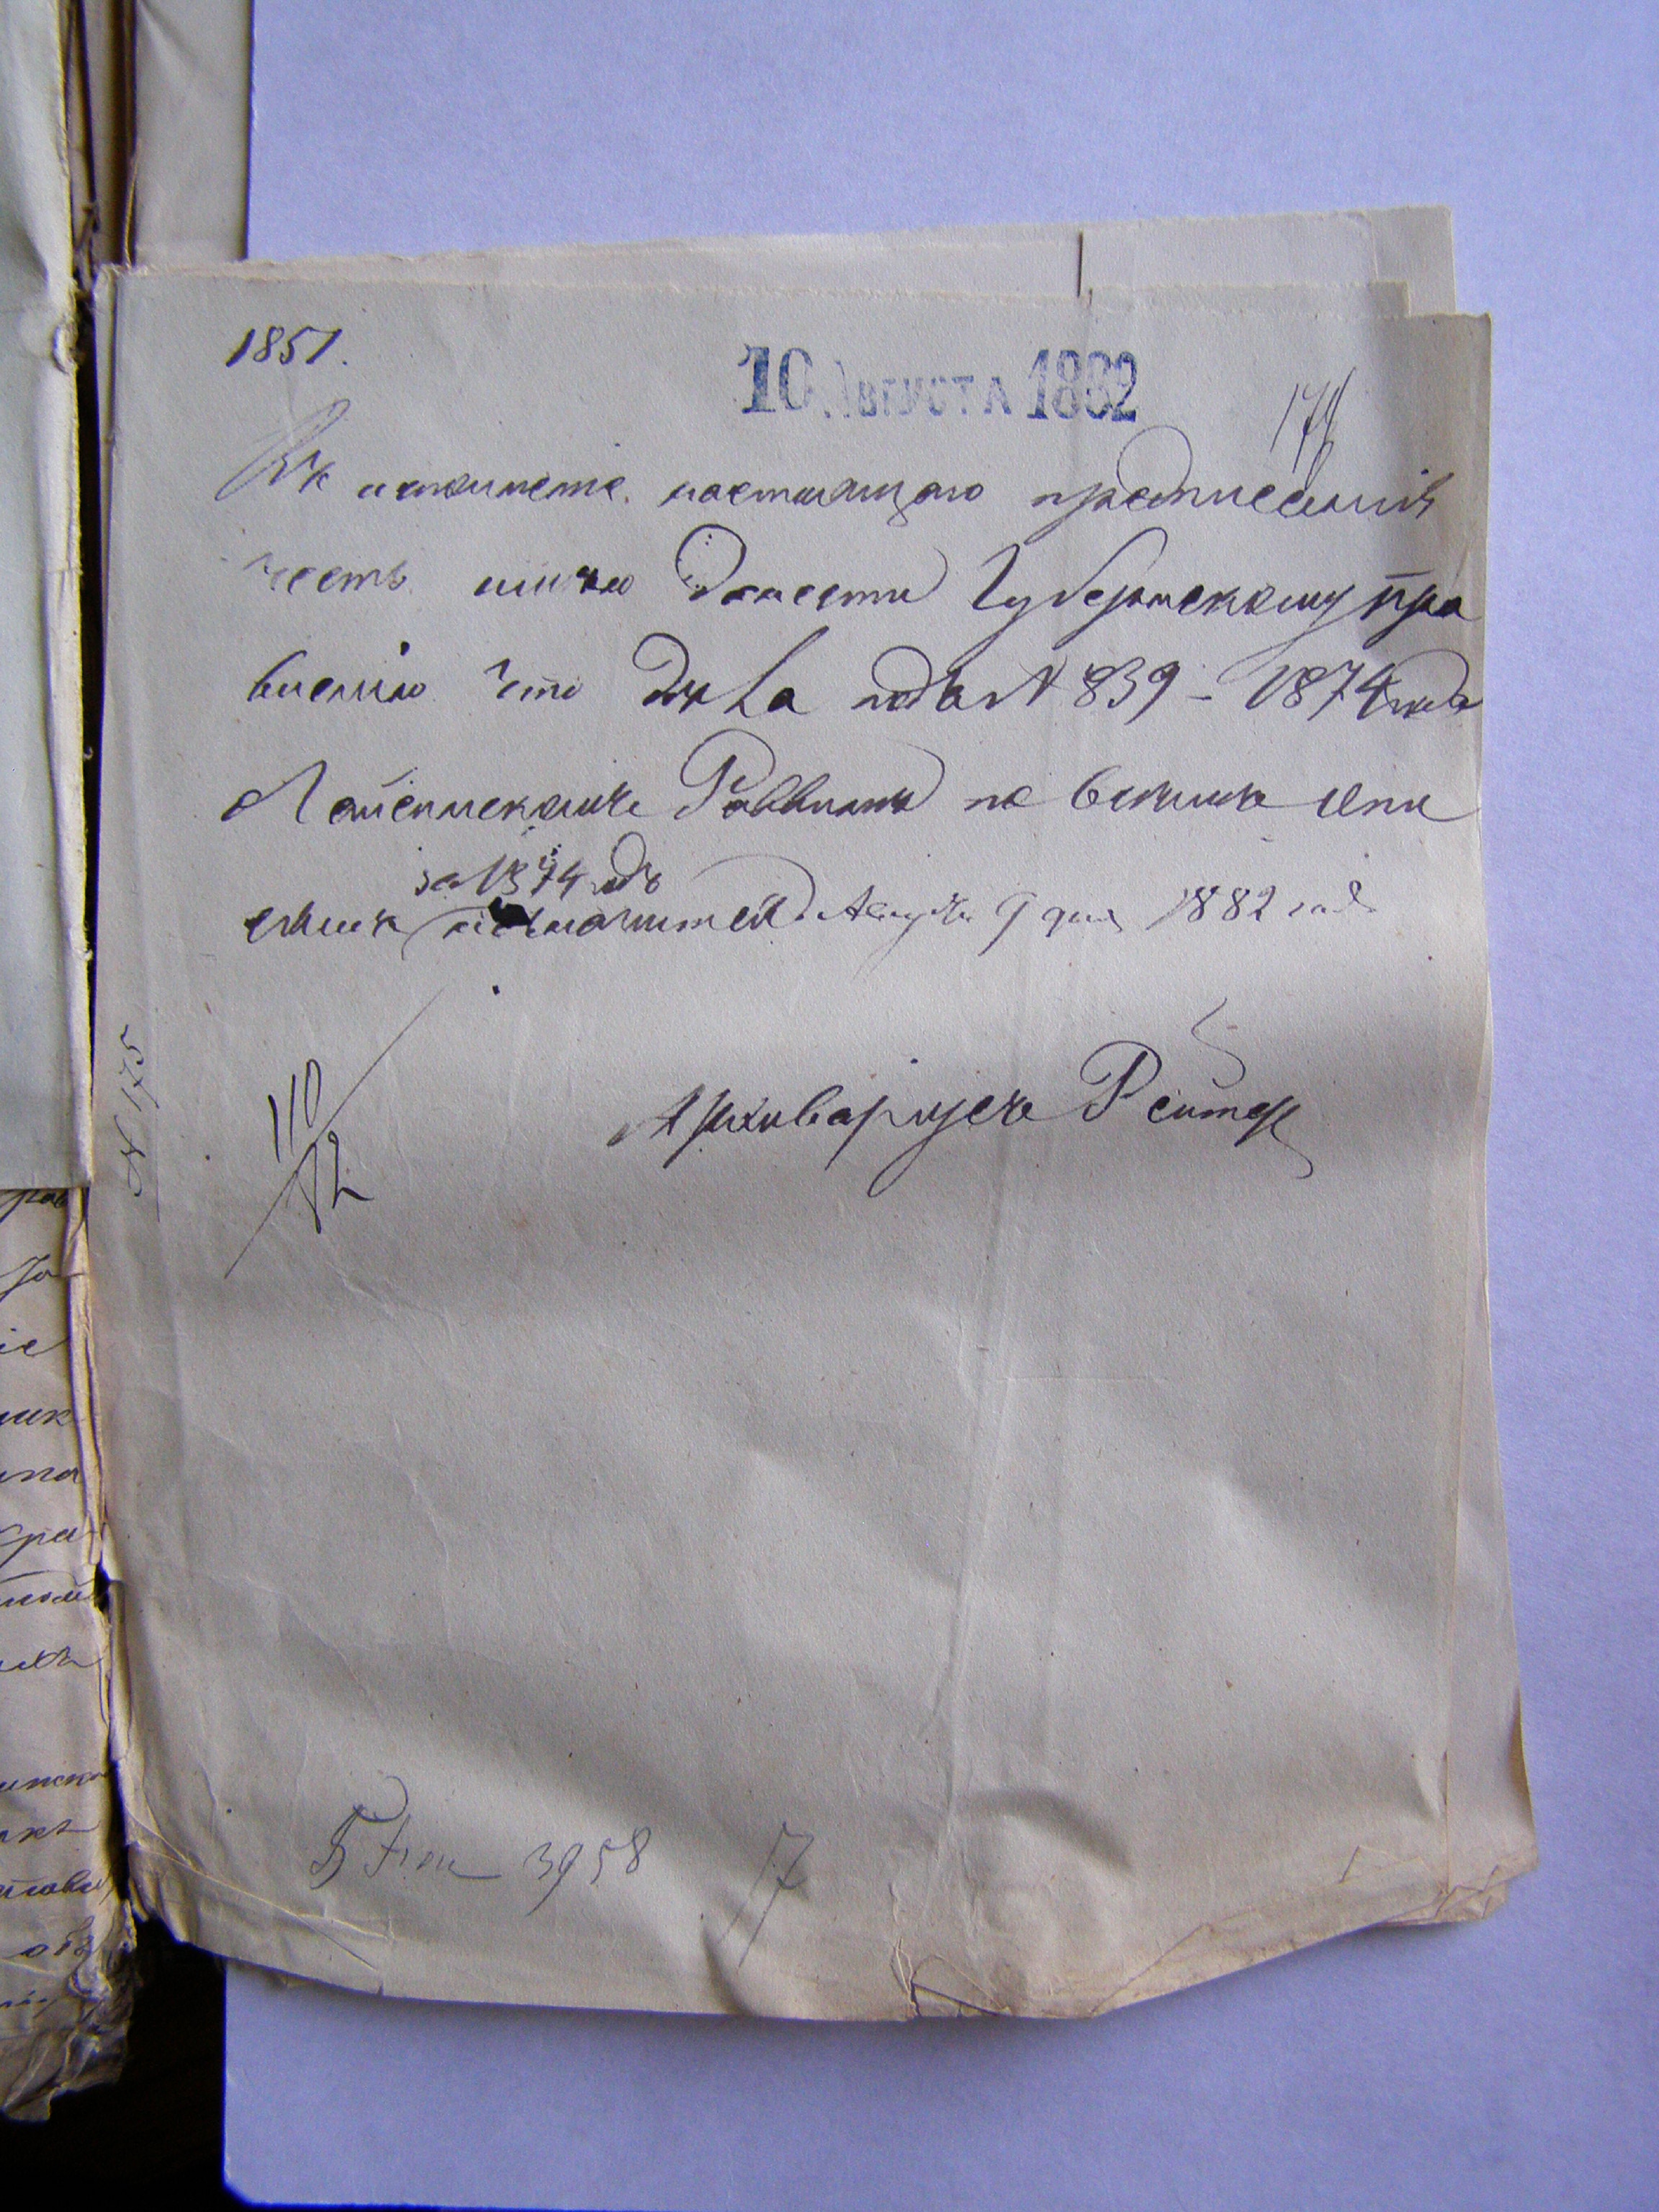 1851.
10 Августа 1882
174
Въ исполненіе настоящаго предписанія
честь имѣю донести Губернскому Пра
вленію что дѣла подъ N 839 - 1874 года
о Раввинѣ по всѣмъ опи
за 1874 годъ
сямъ не значится Августа 9 дня 1882 года
Архиваріусъ Рейтер
N 175
3958
17